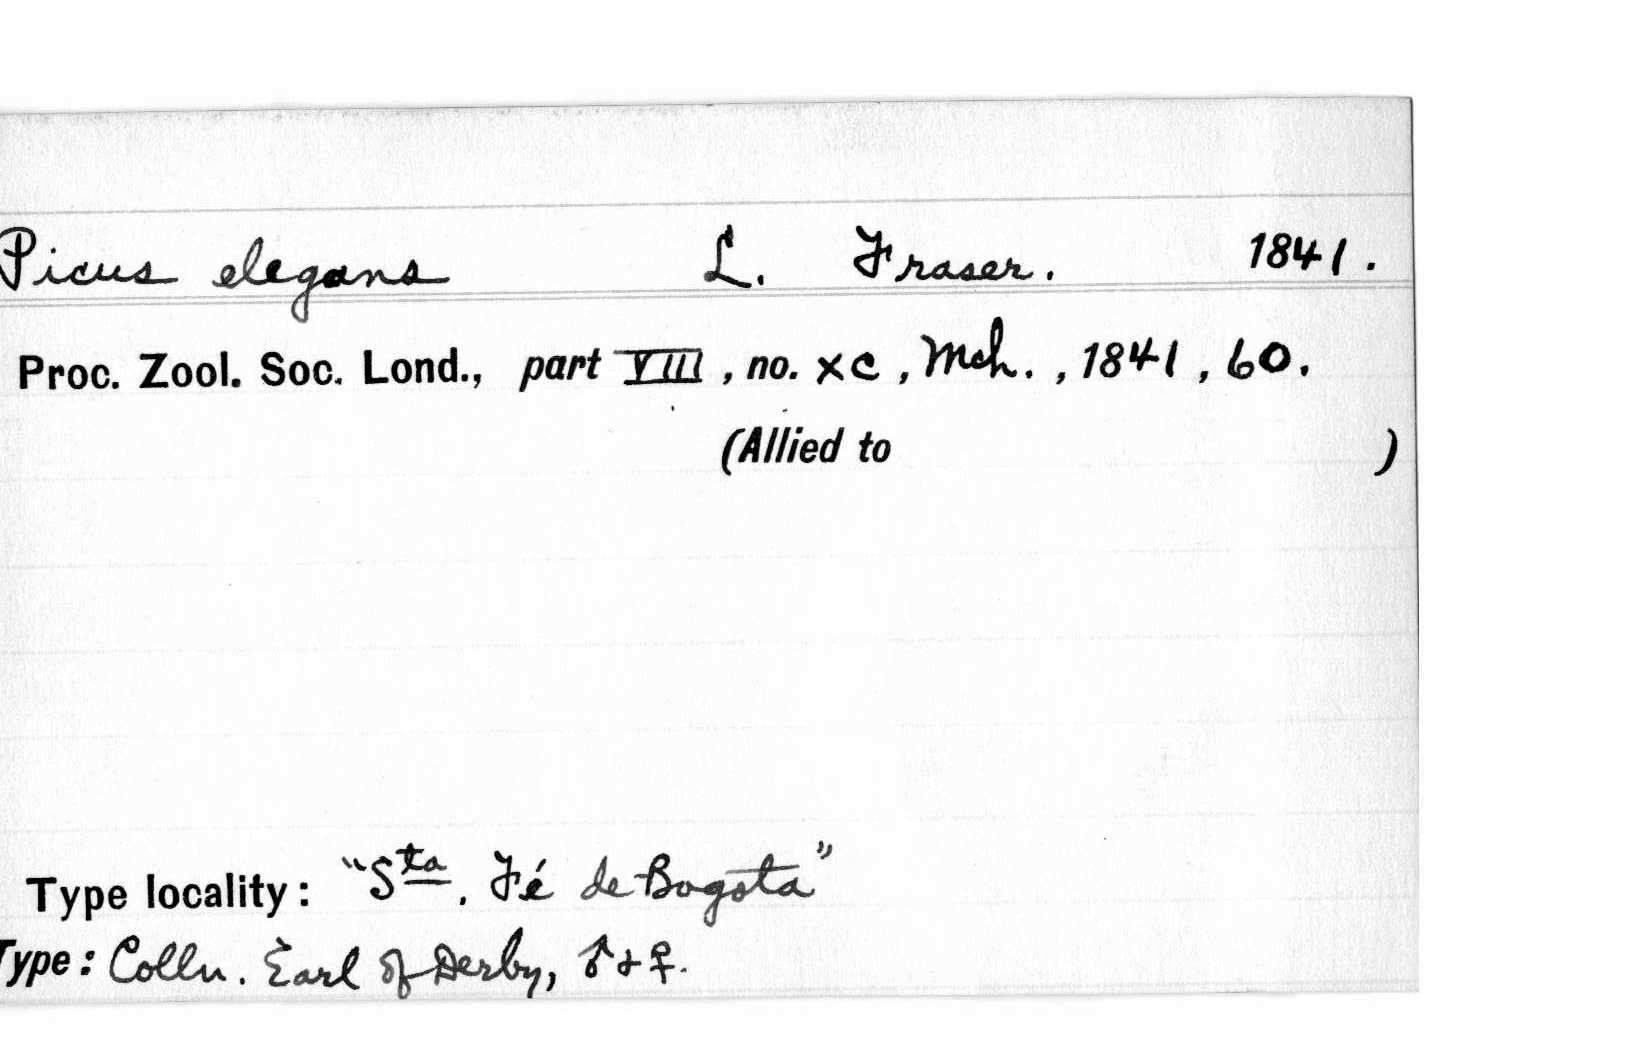 Picus elegans L. Fraser. 1841.
Proc. Zool. Soc. Lond., part VIII, no. xc, Mch., 1841, 60.
(Allied to )
Type locality: "Sta. Fé de Bogota"
Type: Colln. Earl of Derby, ♂ + ♀.